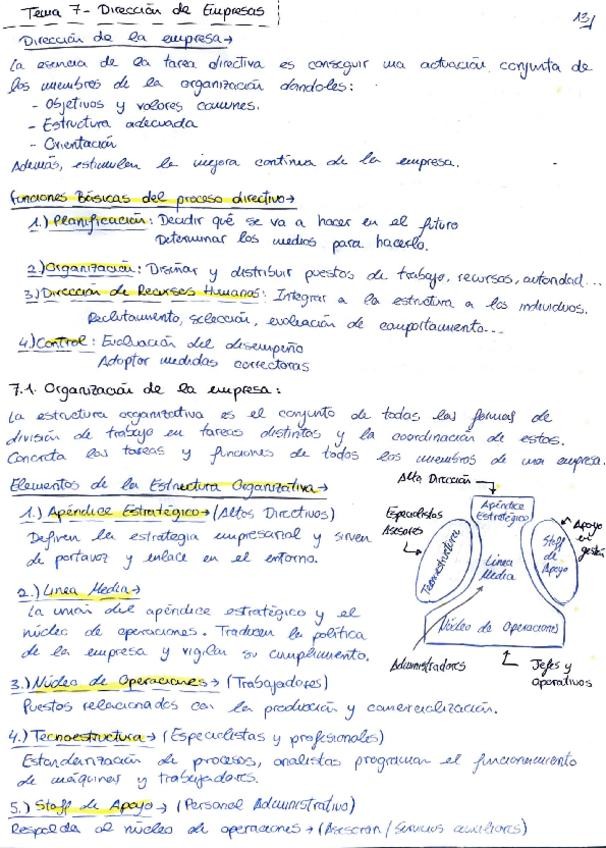 Tema 7- Dirección de Empresas
13/
Dirección de la empresa→
La esencia de la tarea directiva es conseguir una actuación conjunta de
los miembros de la organización dandoles:
- Objetivos y valores comunes.
- Estructura adecuada
- Orientación
Además, estimulen la mejora continua de la empresa.
Funciones Básicas del proceso directivo→
1.) Planificación: Decidir qué se va a hacer en el futuro
Determinar los medios para hacerlo.
2) Organización: Diseñar y distribuir puestos de trabajo, recursos, autoridad...
3) Dirección de Recursos Humanos: Integrar a la estructura a los individuos.
Reclutamiento, selección, evaluación de comportamiento...
4) Control: Evaluación del desempeño
Adoptar medidas correctoras
7.1. Organización de la empresa:
La estructura organizativa es el conjunto de todas las formas de
división de trabajo en tareas distintos y la coordinación de estos.
Concreta las tareas y funciones de todos los miembros de una empresa.
Elementos de la Estructura Organizativa→
1.) Apéndice Estratégico→ (Altos Directivos)
Definen la estrategia empresarial y sirven
de portavoz y enlace en el entorno.
2.) Linea Media→
La unión del apéndice estratégico y el
núcleo de operaciones. Traducen la política
de la empresa y vigilan su cumplimiento.
Alta Dirección→
Apéndice
Estratégico
Especialistas
Asesores
Tecnoestructura
Linea
Media
Staff
de
Apoyo
Apoyo
en
gestión
Núcleo de Operaciones
Administradores
Jefes y
Operativos
3.) Núcleo de Operaciones→ (Trabajadores)
Puestos relacionados con la producción y comercialización.
4.) Tecnoestructura→ (Especialistas y profesionales)
Estandarización de procesos, analistas programan el funcionamiento
de máquinas y trabajadores.
5.) Staff de Apoyo→ (Personal Administrativo)
Respalda al núcleo de operaciones→ (Asesoran/Servicios auxiliares)